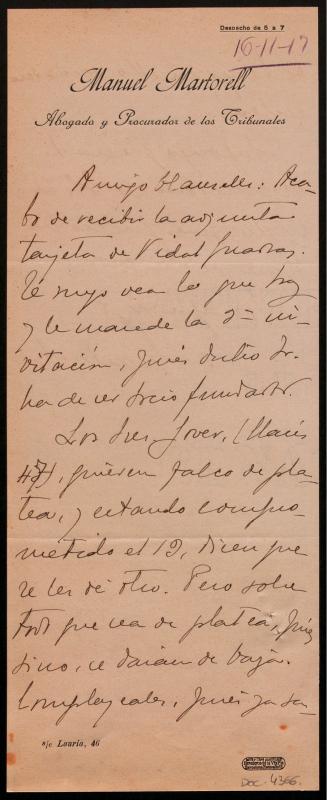 Despacho de 5 a 7
16-11-17
Manuel Martorell
Abogado y Procurador de los Tribunales
Amigo : Aca-
bo de recibir la adjunta
tarjeta de Vidal
Le ruego vea lo que hay
y le mande la 2ª in-
vitación, pués dicho Sr.
ha de ser socio fundador.
Los Sres. Jover, (Llauria
47), quieren palco de pla-
tea, y estando compro-
metido el 12, dicen que
se les dé otro. Pero sobre
todo que sea de platea, pués
sino, se darían de baja.
Complazcales, pués ya sa-
s/c Lauria, 46
DOC. 4366